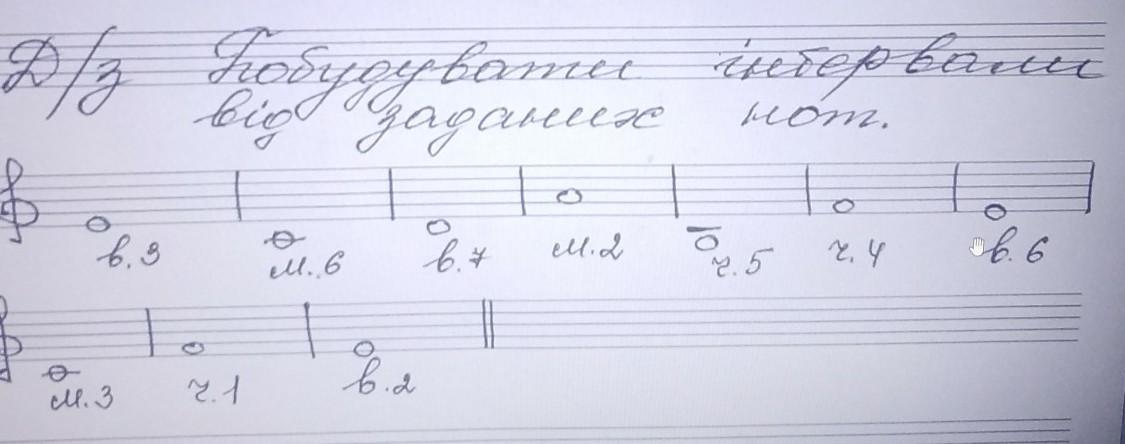 Д/з Побудувати інтервали
від заданих нот.
в.3 м.6 в.7 м.2 ч.5 ч.4 в.6
м.3 ч.1 в.2